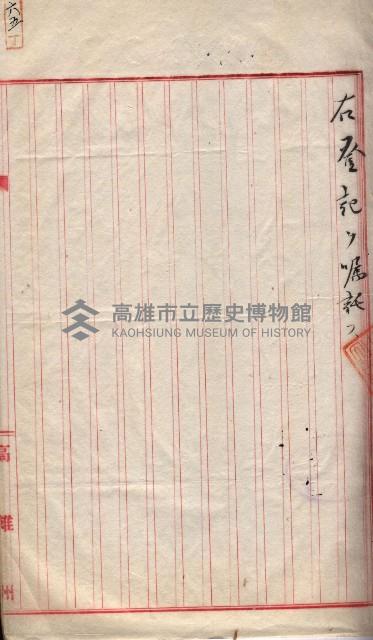 六五
丁
右登記ヲ嘱託ス
高雄市立歷史博物館
KAOHSIUNG MUSEUM OF HISTORY
高雄州